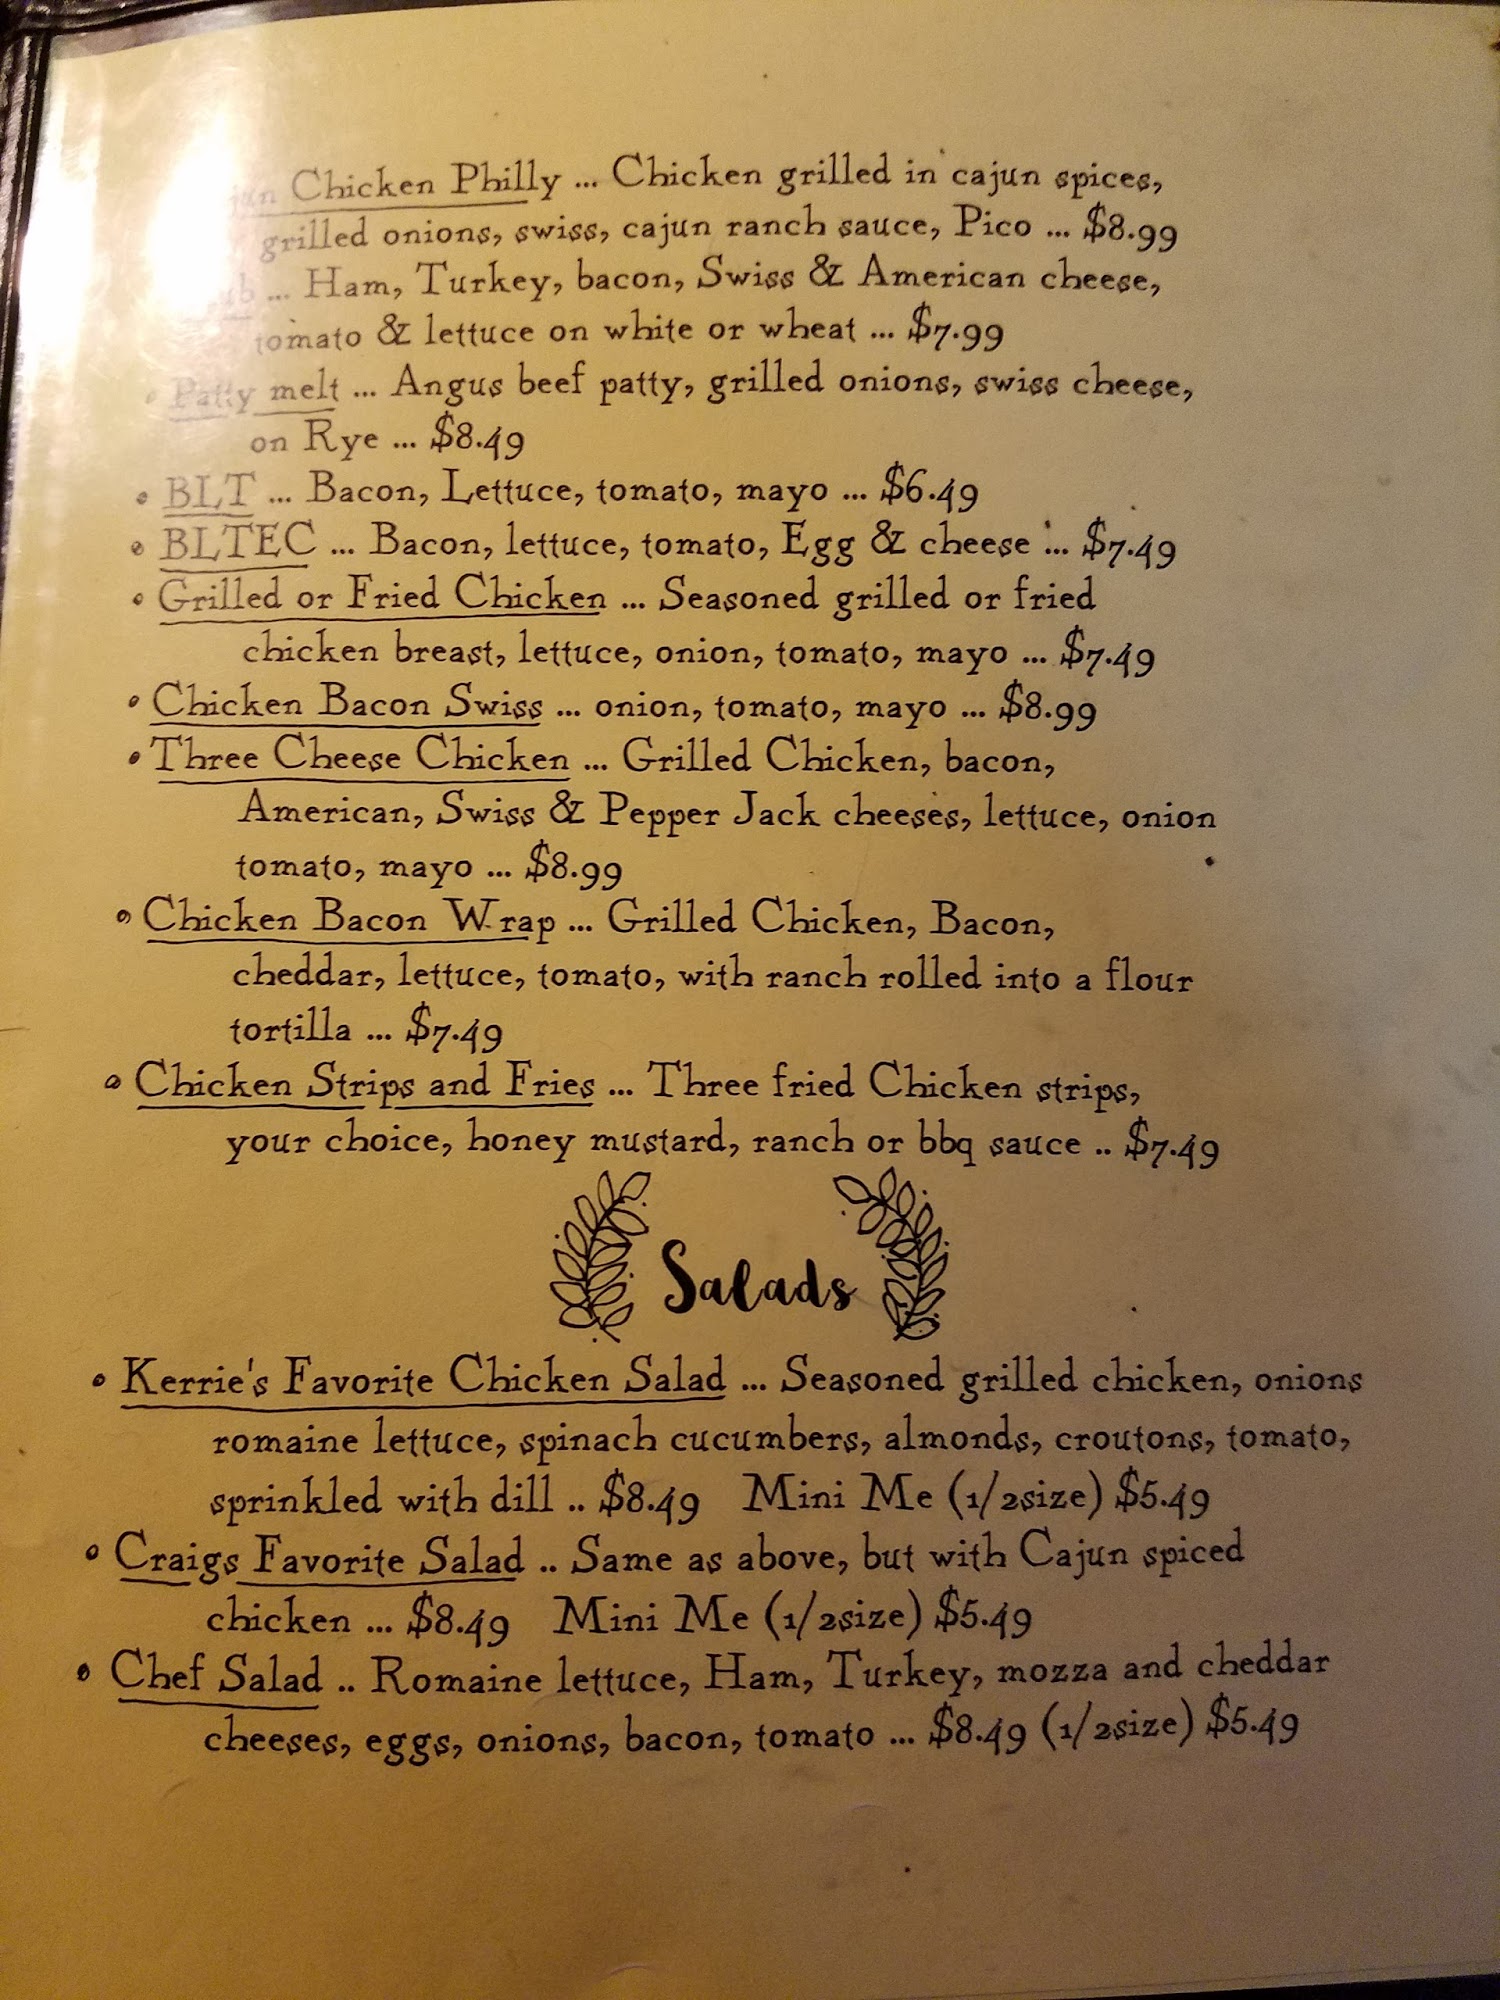 Chicken Philly ... Chicken grilled in cajun spices,
grilled onions, swiss, cajun ranch sauce, Pico ... $8.99
... Ham, Turkey, bacon, Swiss & American cheese,
tomato & lettuce on white or wheat ... $7.99
• Patty melt ... Angus beef patty, grilled onions, swiss cheese,
on Rye ... $8.49
• BLT ... Bacon, Lettuce, tomato, mayo ... $6.49
• BLTEC ... Bacon, lettuce, tomato, Egg & cheese ... $7.49
• Grilled or Fried Chicken ... Seasoned grilled or fried
chicken breast, lettuce, onion, tomato, mayo ... $7.49
• Chicken Bacon Swiss ... onion, tomato, mayo ... $8.99
• Three Cheese Chicken ... Grilled Chicken, bacon,
American, Swiss & Pepper Jack cheeses, lettuce, onion
tomato, mayo ... $8.99
• Chicken Bacon Wrap ... Grilled Chicken, Bacon,
cheddar, lettuce, tomato, with ranch rolled into a flour
tortilla ... $7.49
• Chicken Strips and Fries ... Three fried Chicken strips,
your choice, honey mustard, ranch or bbq sauce .. $7.49
Salads
• Kerrie's Favorite Chicken Salad ... Seasoned grilled chicken, onions
romaine lettuce, spinach cucumbers, almonds, croutons, tomato,
sprinkled with dill .. $8.49 Mini Me (1/2size) $5.49
• Craigs Favorite Salad .. Same as above, but with Cajun spiced
chicken ... $8.49 Mini Me (1/2size) $5.49
• Chef Salad .. Romaine lettuce, Ham, Turkey, mozza and cheddar
cheeses, eggs, onions, bacon, tomato ... $8.49 (1/2size) $5.49